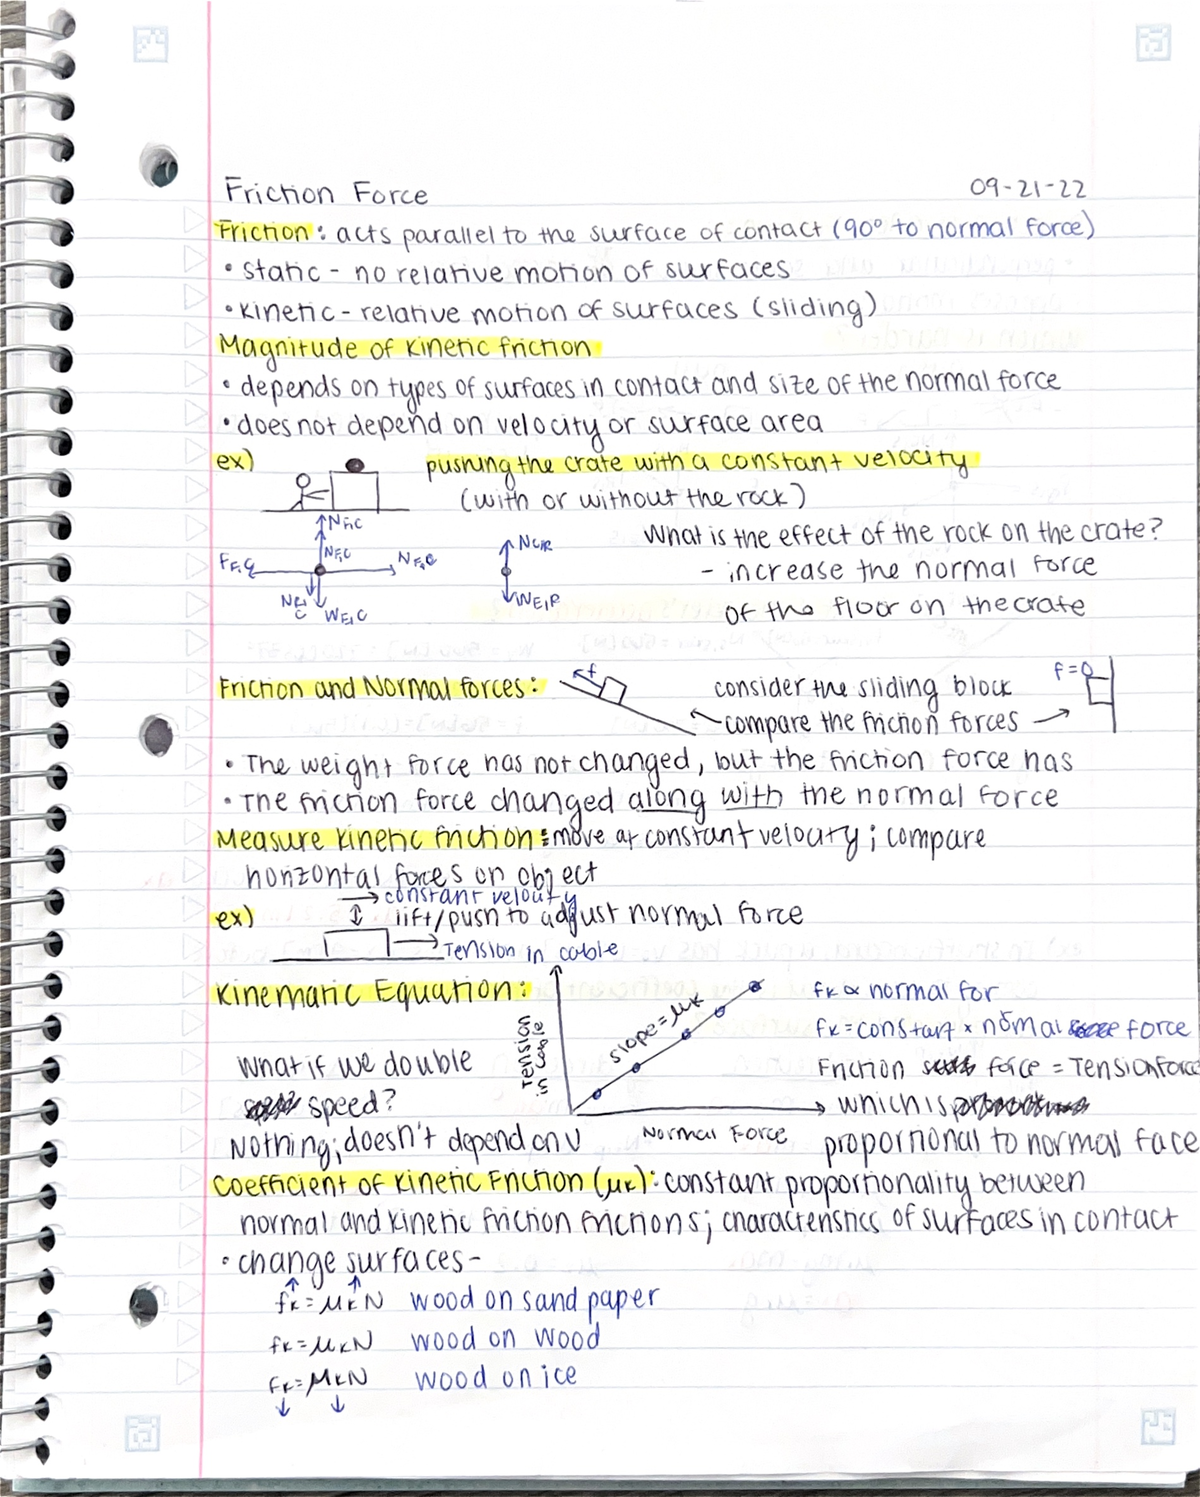 Friction Force 09-21-22
Friction: acts parallel to the surface of contact (90° to normal force)
• static - no relative motion of surfaces
• kinetic - relative motion of surfaces (sliding)
Magnitude of kinetic friction
• depends on types of surfaces in contact and size of the normal force
• does not depend on velocity or surface area
ex) pushing the crate with a constant velocity
(with or without the rock)
What is the effect of the rock on the crate?
- increase the normal force
of the floor on the crate
N F,C
N F,C
N C,R
W E,C
W E,R
Friction and Normal forces: f consider the sliding block f=0
compare the friction forces
• The weight force has not changed, but the friction force has
• The friction force changed along with the normal force
Measure kinetic friction: move at constant velocity; compare
horizontal forces on object
→ constant velocity
ex) ↕ lift/push to adjust normal force
→ Tension in cable
Kinematic Equation:
Tension in cable
slope = μk
Normal Force
fk ∝ normal for
fk = constant × normal force
Friction force = Tension force
which is
proportional to normal face
What if we double
speed?
Nothing; doesn't depend on v
Coefficient of Kinetic Friction (μk): constant proportionality between
normal and kinetic friction frictions; characteristics of surfaces in contact
• change surfaces -
↑ ↑
fk = μkN wood on sand paper
fk = μkN wood on wood
fk = μkN wood on ice
↓ ↓